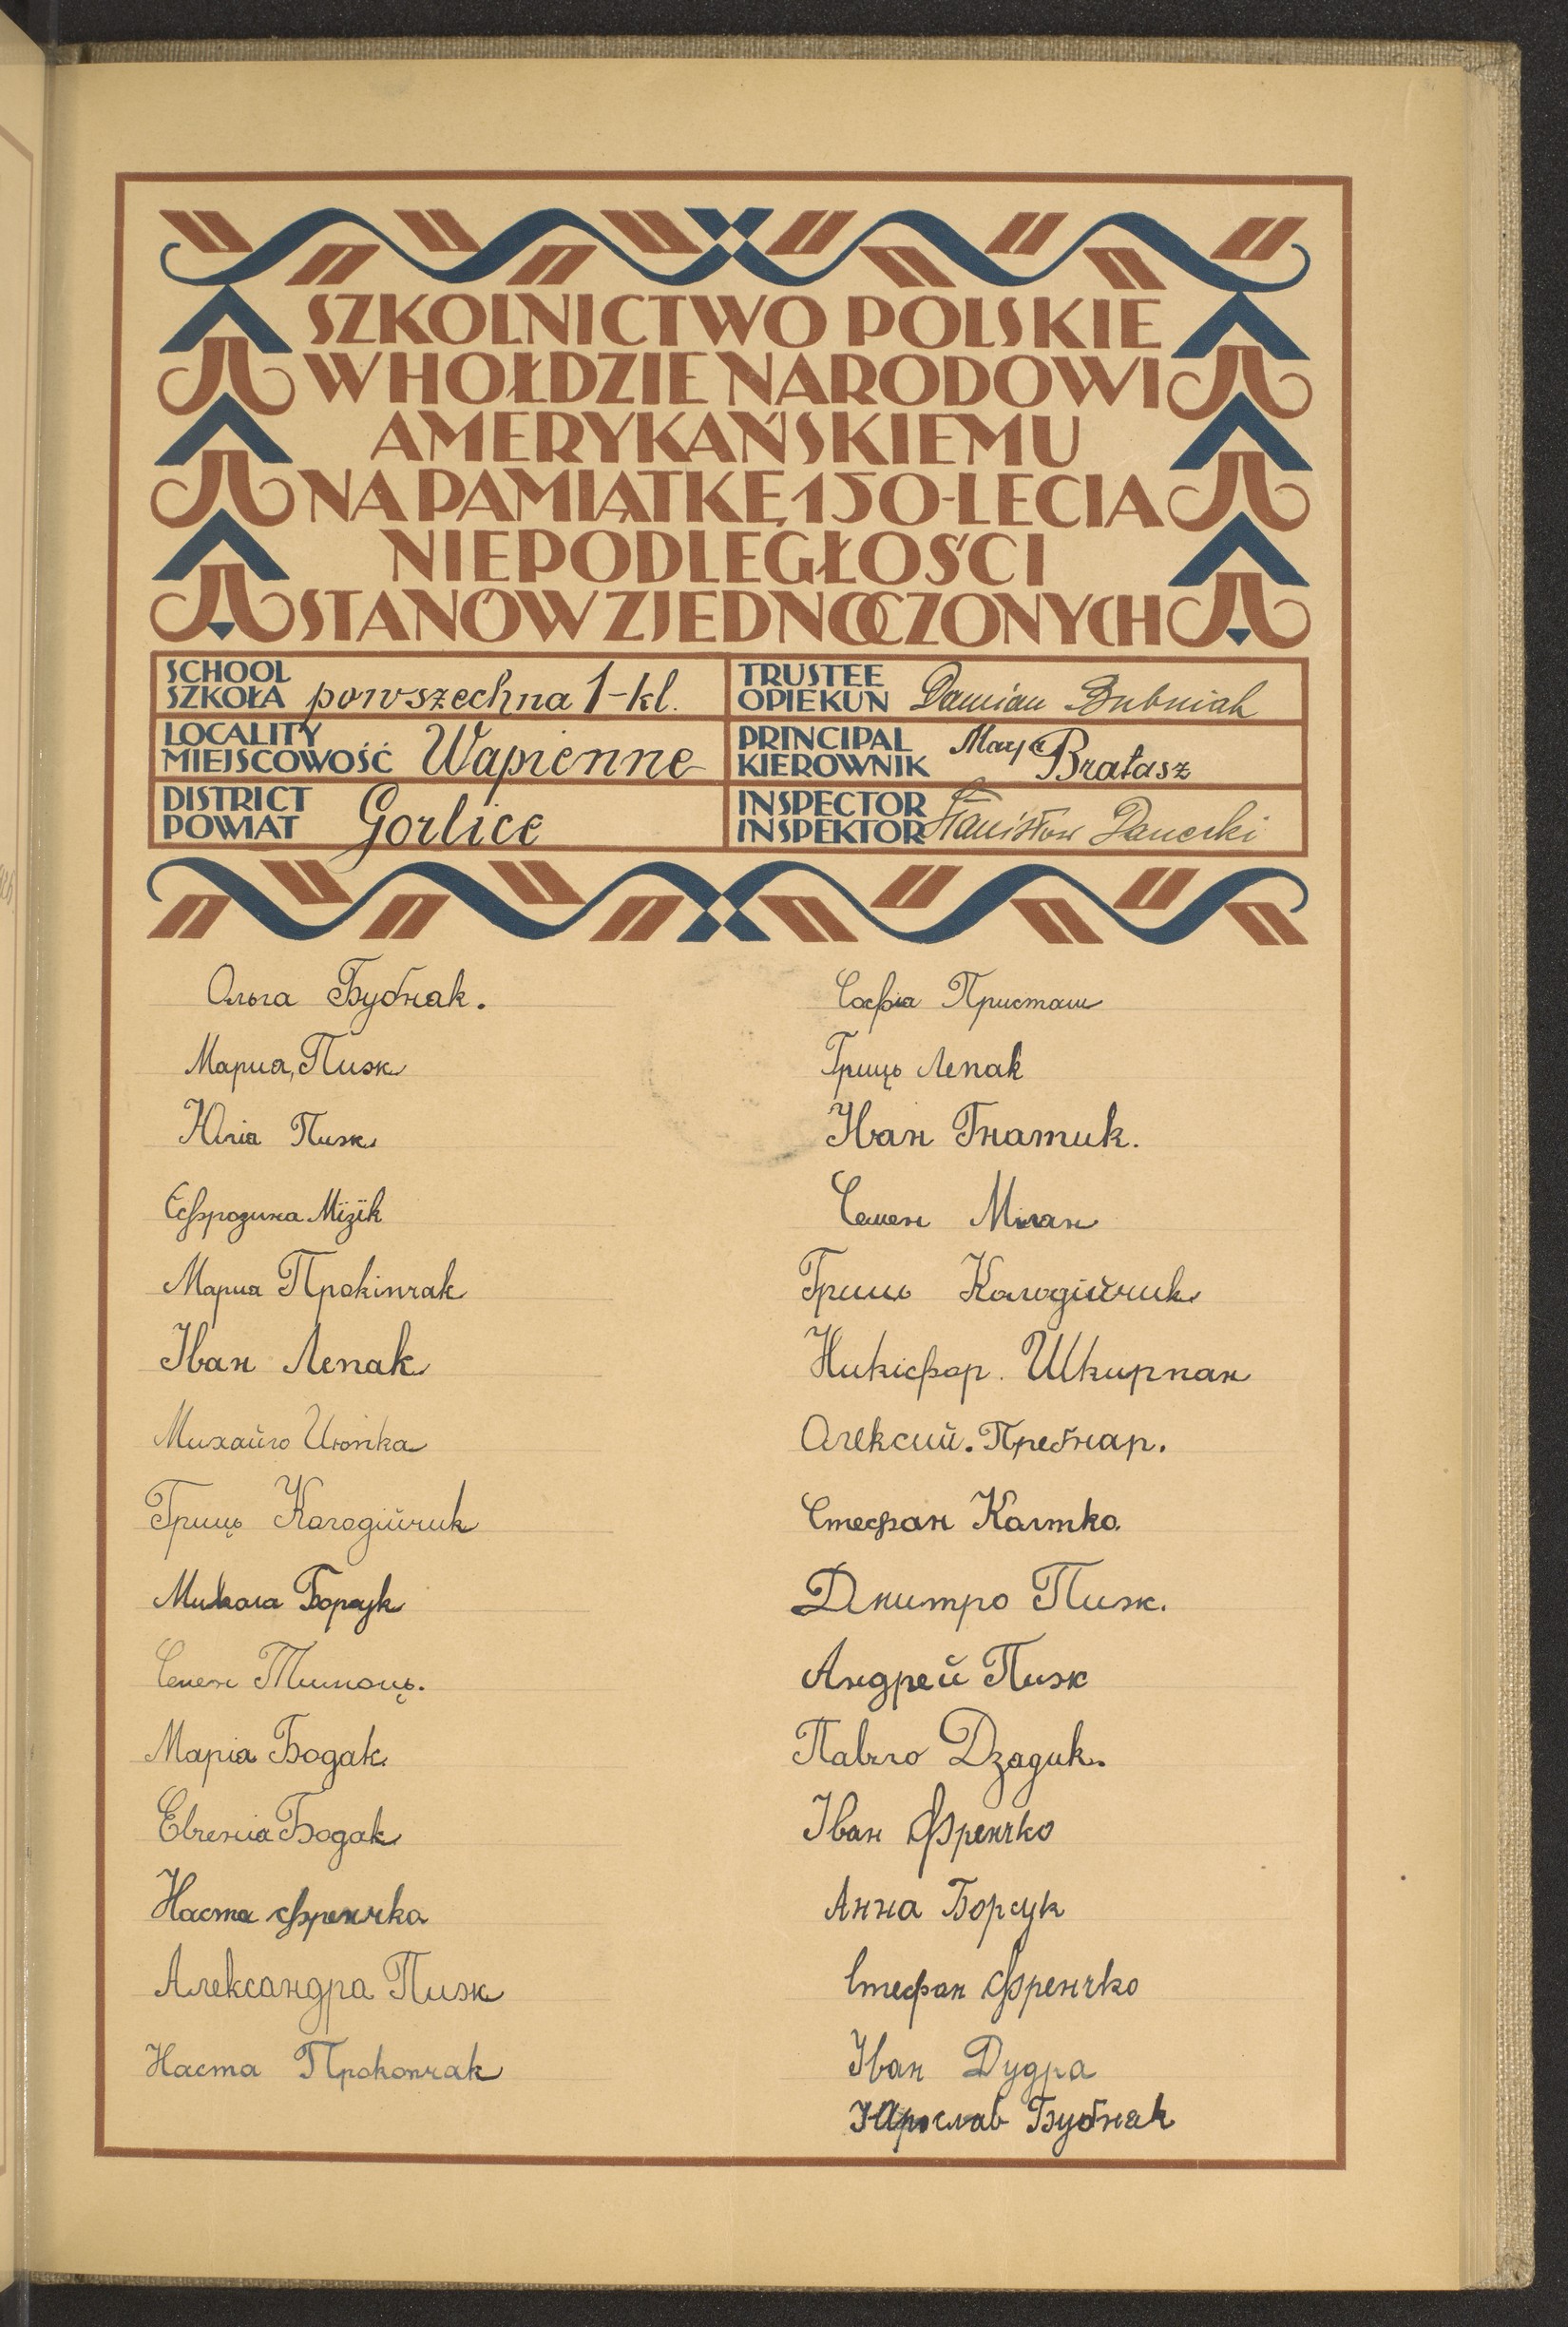 SZKOLNICTWO POLSKIE
W HOŁDZIE NARODOWI
AMERYKAŃSKIEMU
NA PAMIĄTKĘ 150-LECIA
NIEPODLEGŁOŚCI
STANÓW ZJEDNOCZONYCH
SCHOOL
SZKOŁA powszechna 1-kl.
LOCALITY
MIEJSCOWOŚĆ Wapienne
DISTRICT
POWIAT Gorlice
TRUSTEE
OPIEKUN Damian Bubniak
PRINCIPAL
KIEROWNIK Marya Bratasz
INSPECTOR
INSPEKTOR Stanisław
Ольга Бубнак.
Мариа Пиж
Юліа Пиж
Єфрозина Мїзїк
Мариа Прокіпчак
Іван Лепак
Михайло
Гриць Колодійчик
Микола Борсук
Семен Тимоць.
Маріа Бодак
Евгениа Бодак
Наста Френчка
Александра Пиж
Наста Прокопчак
Софіа Присташ
Гриць Лепак
Иван Гнатик.
Семен Мілан
Гриць Колодійчик
Никіфор. Шкирпан
Олексий. Пребнар.
Стефан Колтко.
Дмитро Пиж.
Андрей Пиж
Павло Дзадик.
Іван Френчко
Анна Борсук
Стефан Френчко
Іван Дудра
Ярослав Бубнак